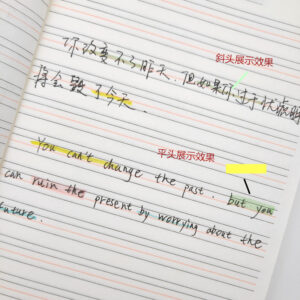 你改变不了昨天，但如果你过于忧虑明
斜头展示效果
将会毁了今天.
You can't change the past, but you
平头展示效果
can ruin the present by worrying about the
future.